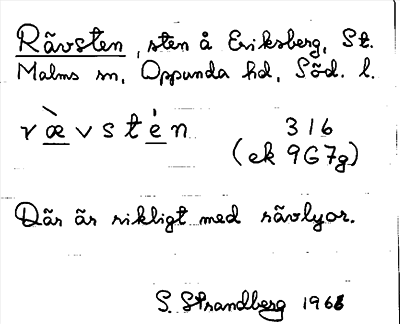 Rävsten, sten å Eriksberg, St.
Malms sn, Oppunda hd, Söd. l.
rævstèn 316
(ek 9G7g)
Där är rikligt med rävlyor.
S. Strandberg 1968